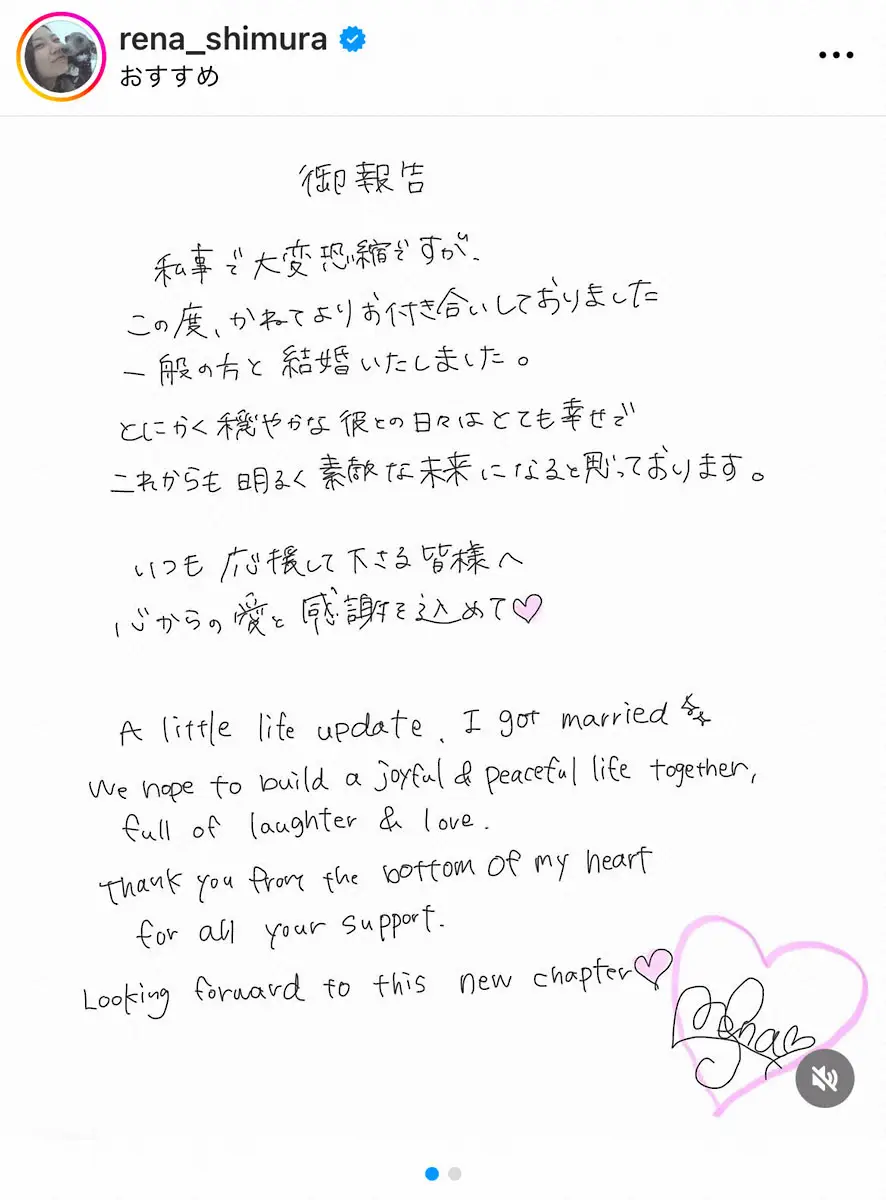 rena_shimura
おすすめ
御報告
私事で大変恐縮ですが、
この度、かねてよりお付き合いしておりました
一般の方と結婚いたしました。
とにかく穏やかな彼との日々はとても幸せで
これからも明るく素敵な未来になると思っております。
いつも応援して下さる皆様へ
心からの愛と感謝を込めて♡
A little life update, I got married
We hope to build a joyful & peaceful life together,
full of laughter & love.
Thank you from the bottom of my heart
for all your support.
Looking forward to this new chapter♡
Rena